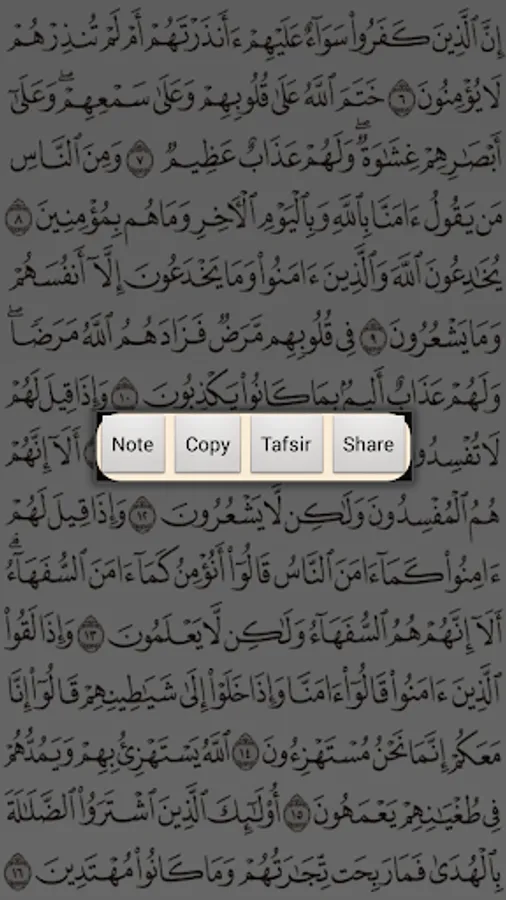 إِنَّ ٱلَّذِينَ كَفَرُوا۟ سَوَآءٌ عَلَيْهِمْ ءَأَنذَرْتَهُمْ أَمْ لَمْ تُنذِرْهُمْ
لَا يُؤْمِنُونَ ٦ خَتَمَ ٱللَّهُ عَلَىٰ قُلُوبِهِمْ وَعَلَىٰ سَمْعِهِمْ ۖ وَعَلَىٰٓ
أَبْصَٰرِهِمْ غِشَٰوَةٌ ۖ وَلَهُمْ عَذَابٌ عَظِيمٌ ٧ وَمِنَ ٱلنَّاسِ
مَن يَقُولُ ءَامَنَّا بِٱللَّهِ وَبِٱلْيَوْمِ ٱلْءَاخِرِ وَمَا هُم بِمُؤْمِنِينَ ٨
يُخَٰدِعُونَ ٱللَّهَ وَٱلَّذِينَ ءَامَنُوا۟ وَمَا يَخْدَعُونَ إِلَّآ أَنفُسَهُمْ
وَمَا يَشْعُرُونَ ٩ فِى قُلُوبِهِم مَّرَضٌ فَزَادَهُمُ ٱللَّهُ مَرَضًا ۖ
وَلَهُمْ عَذَابٌ أَلِيمٌۢ بِمَا كَانُوا۟ يَكْذِبُونَ ١٠ وَإِذَا قِيلَ لَهُمْ
Note Copy Tafsir Share
لَا تُفْسِدُوا۟ أَلَآ إِنَّهُمْ
هُمُ ٱلْمُفْسِدُونَ وَلَٰكِن لَّا يَشْعُرُونَ ١٢ وَإِذَا قِيلَ لَهُمْ
ءَامِنُوا۟ كَمَآ ءَامَنَ ٱلنَّاسُ قَالُوٓا۟ أَنُؤْمِنُ كَمَآ ءَامَنَ ٱلسُّفَهَآءُ ۗ
أَلَآ إِنَّهُمْ هُمُ ٱلسُّفَهَآءُ وَلَٰكِن لَّا يَعْلَمُونَ ١٣ وَإِذَا لَقُوا۟
ٱلَّذِينَ ءَامَنُوا۟ قَالُوٓا۟ ءَامَنَّا وَإِذَا خَلَوْا۟ إِلَىٰ شَيَٰطِينِهِمْ قَالُوٓا۟ إِنَّا
مَعَكُمْ إِنَّمَا نَحْنُ مُسْتَهْزِءُونَ ١٤ ٱللَّهُ يَسْتَهْزِئُ بِهِمْ وَيَمُدُّهُمْ
فِى طُغْيَٰنِهِمْ يَعْمَهُونَ ١٥ أُو۟لَٰٓئِكَ ٱلَّذِينَ ٱشْتَرَوُا۟ ٱلضَّلَٰلَةَ
بِٱلْهُدَىٰ فَمَا رَبِحَت تِّجَٰرَتُهُمْ وَمَا كَانُوا۟ مُهْتَدِينَ ١٦